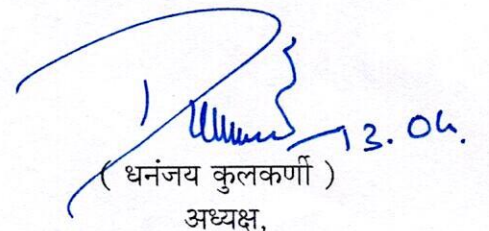 13.04.
( धनंजय कुलकर्णी )
अध्यक्ष,